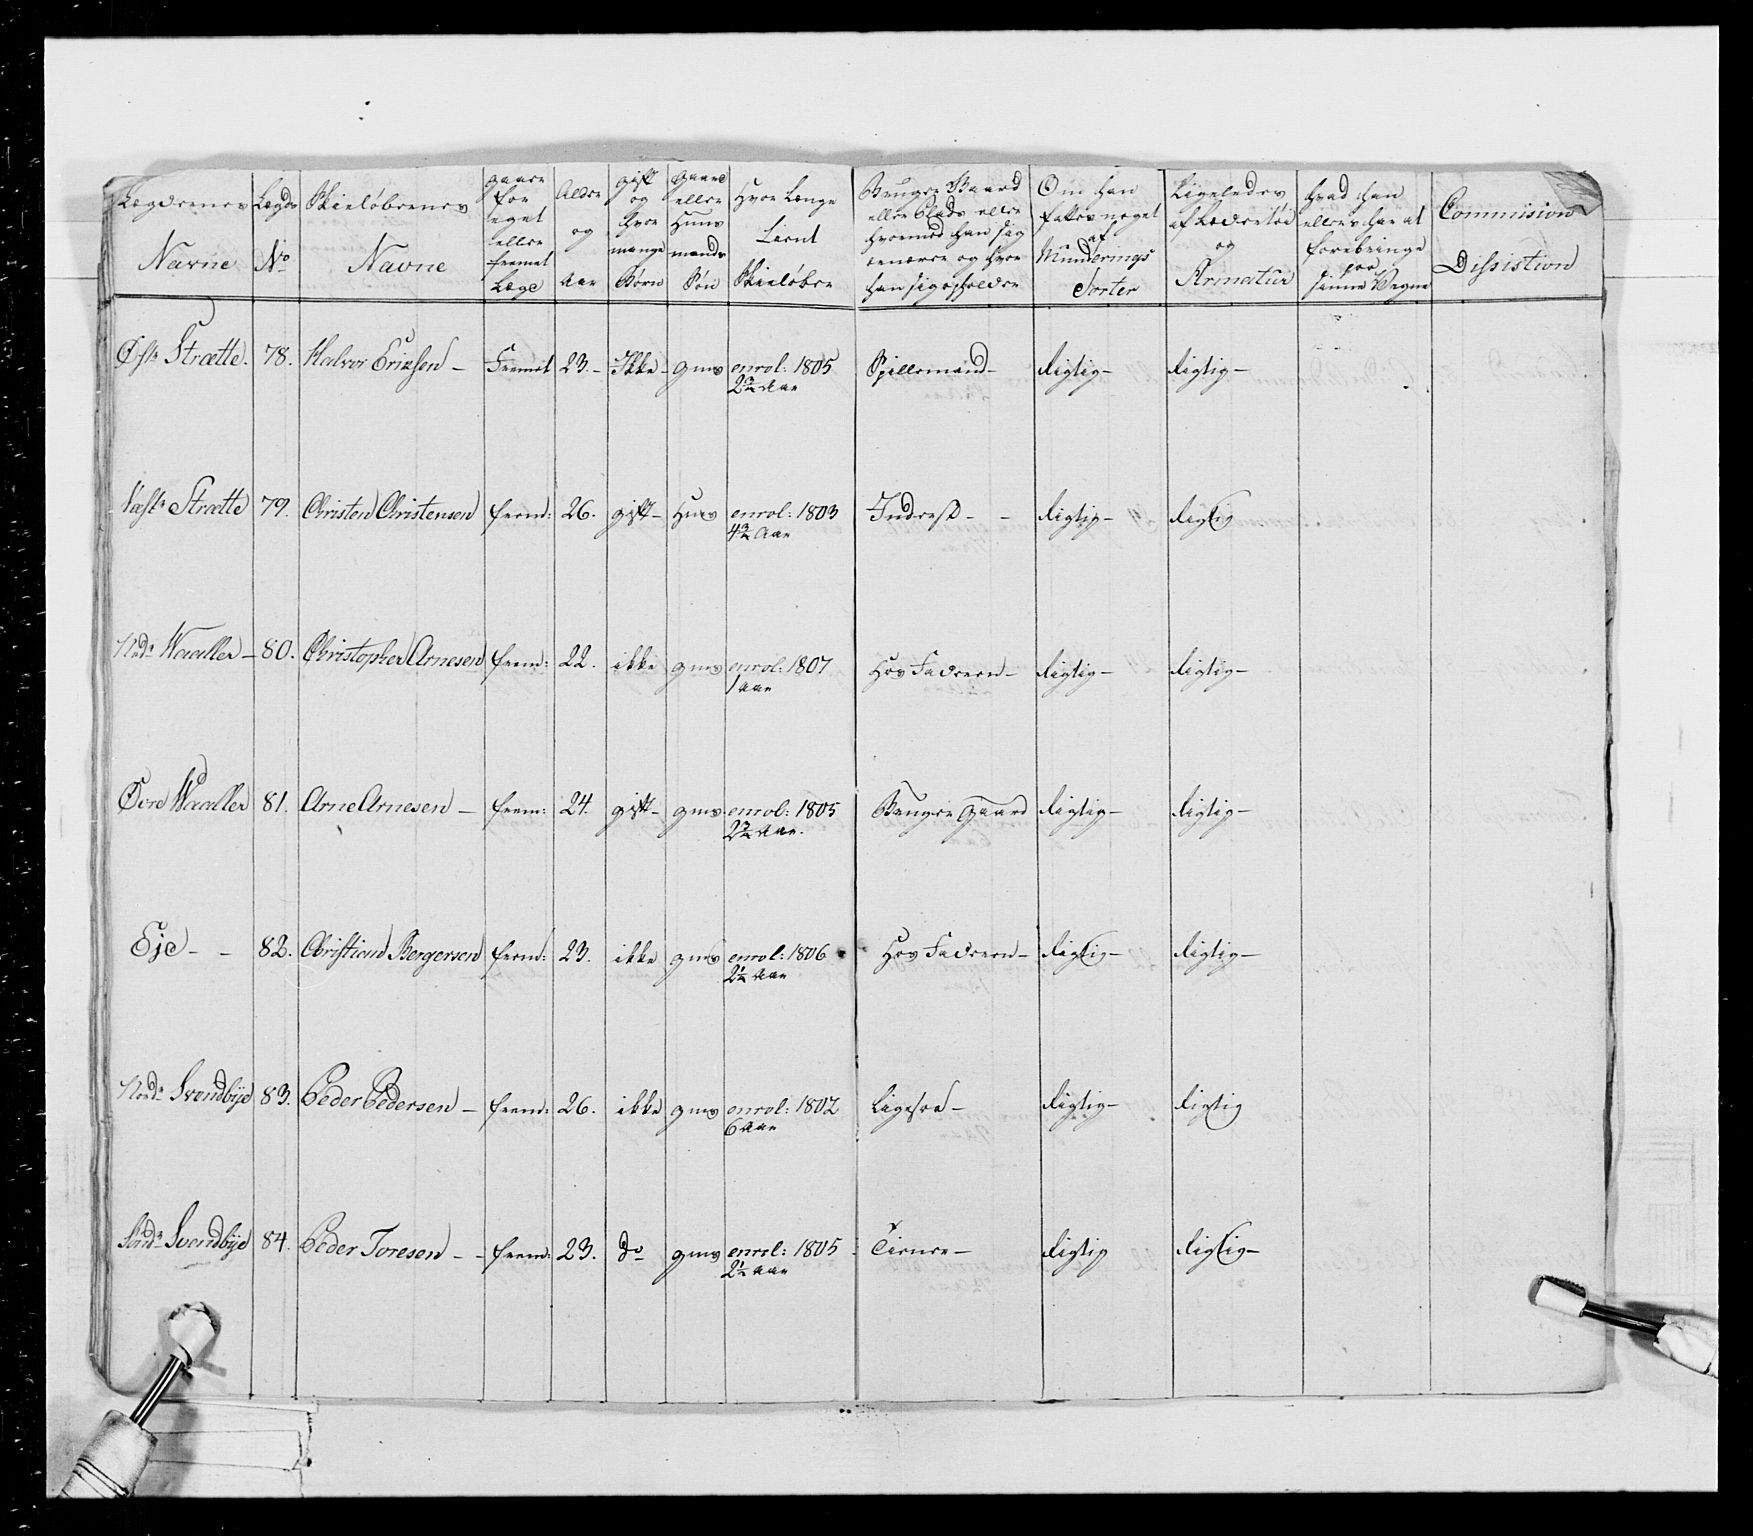 Lægdernes Navne | Lægds No | Skieløbernes Navne | gaaer for eget eller fremet Læge | Alder og Aar | gift og hvor mange Børn | gaard eller Huus mands Søn | Hvor Længe Tient Skieløber | Bruger Gaard eller Plads eller hvormed han sig ernærer og hvor han sig opholder | Om han fattes noget af Munderings Sorter | Ligeledes af Lædertøi og Armatur | hvad han ellers har at forebringe paa sinne Vegne | Commision Dissistion
Østr Strætte. | 78. | Halvor Erichsen – | Fremet | 23. – | Ikke – | gms | enrol: 1805 2 3/4 Aar | Spillemand – | Rigtig – | Rigtig –
Vestr Strætte | 79. | Christen Christensen | frem: | 26. | gift – | Huus | enrol: 1803 4 3/4 Aar | Inderst – – | Rigtig – | Rigtig
Nedr Waaller – | 80. | Christopher Arnesen | frem: | 22. | ikke | gms | enrol: 1807 1 Aar | Hos Faderen – | Rigtig – | Rigtig –
Øvre Waaller | 81. | Arne Arnesen – | frem: | 24. | gift – | gms | enrol: 1805 2 3/4 Aar. | Bruger gaard | Rigtig – | Rigtig –
Eje – – | 82. | Christiand Bergersen | frem: | 23. | ikke | gms | enrol: 1806 2 1/2 Aar | Hos Faderen – | Rigtig – | Rigtig –
Nordr Svendbye | 83. | Peder Pedersen – | frem: | 26. | ikke | gms | enrol: 1802 6 Aar | Ligesaa – | Rigtig – | Rigtig
Søndr Svendbye | 84. | Peder Toresen – – | frem: | 23. | do | gms | enrol: 1805 2 1/2 Aar | Tiener – | Rigtig | Rigtig –